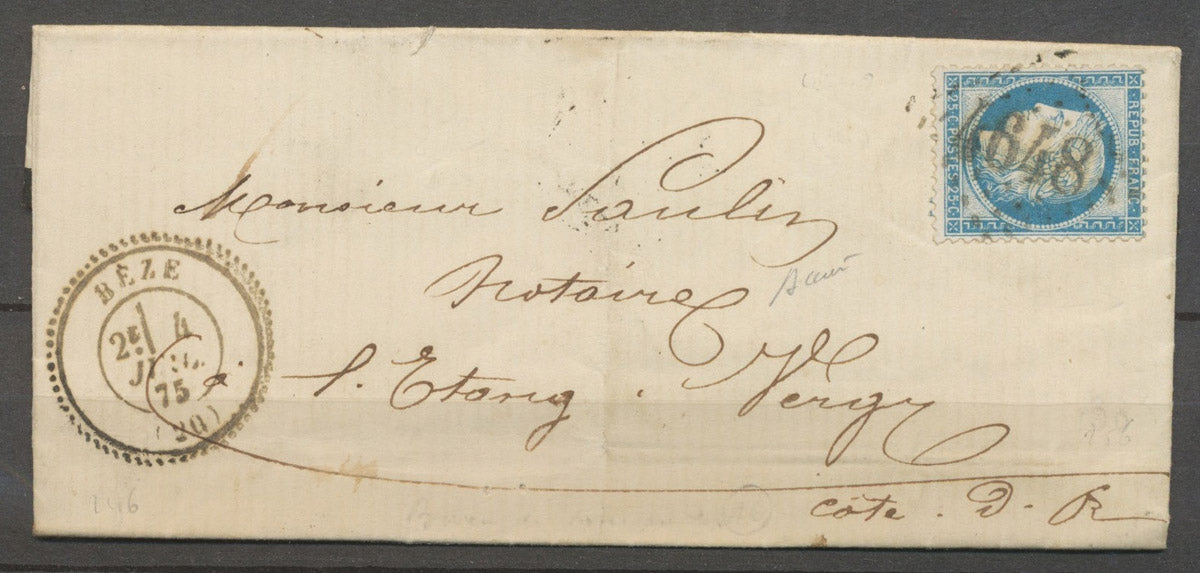 REPUB·FRANC·
25·C·POSTES·25·C
4648
Monsieur Paulin
Notaire
à l'Etang Vergy
Côte. D. R
BÈZE
2E 4
75
(20)